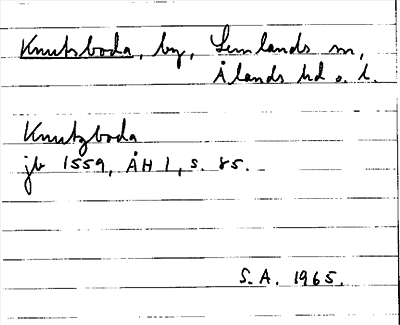 Knutsboda, by, Lemlands sn,
Ålands hd o. l.
Knutzboda
jb 1559, ÅH 1, s. 85.
S.A. 1965.